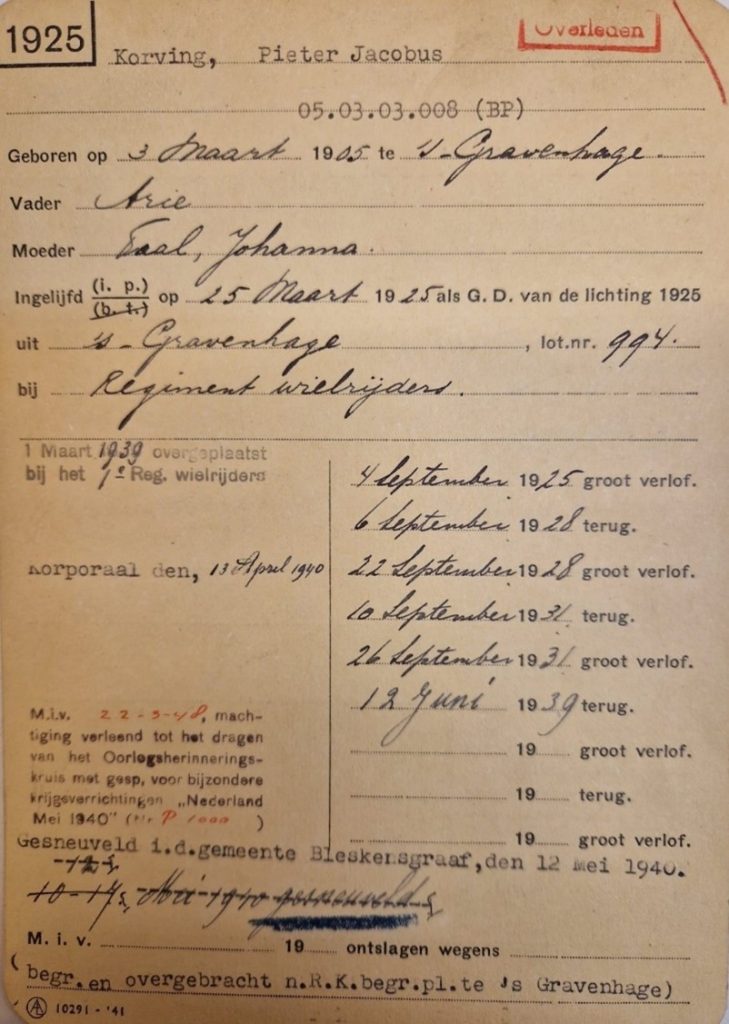 1925
Overleden
Korving, Pieter Jacobus
05.03.03.008 (BP)
Geboren op 3 Maart 1905 te 's-Gravenhage.
Vader Arie
Moeder Taal, Johanna.
Ingelijfd (i. p.) (b. t.) op 25 Maart 1925 als G. D. van de lichting 1925
uit 's-Gravenhage, lot.nr. 994.
bij Regiment wielrijders.
1 Maart 1939 overgeplaatst
bij het 1e Reg. wielrijders
Korporaal den, 13 April 1940
M.i.v. 22-3-48, mach-
tiging verleend tot het dragen
van het Oorlogsherinnerings-
kruis met gesp, voor bijzondere
krijgsverrichtingen „Nederland
Mei 1940" (Nr P 1000 )
4 September 1925 groot verlof.
6 September 1928 terug.
22 September 1928 groot verlof.
10 September 1931 terug.
26 September 1931 groot verlof.
12 Juni 1939 terug.
19 groot verlof.
19 terug.
19 groot verlof.
Gesneuveld i.d.gemeente Bleskensgraaf, den 12 mei 1940.
10-17 Mei 1940 gesneuveld
M. i. v. 19 ontslagen wegens
(begr.en overgebracht n.R.K.begr.pl.te 's Gravenhage)
10291 - '41